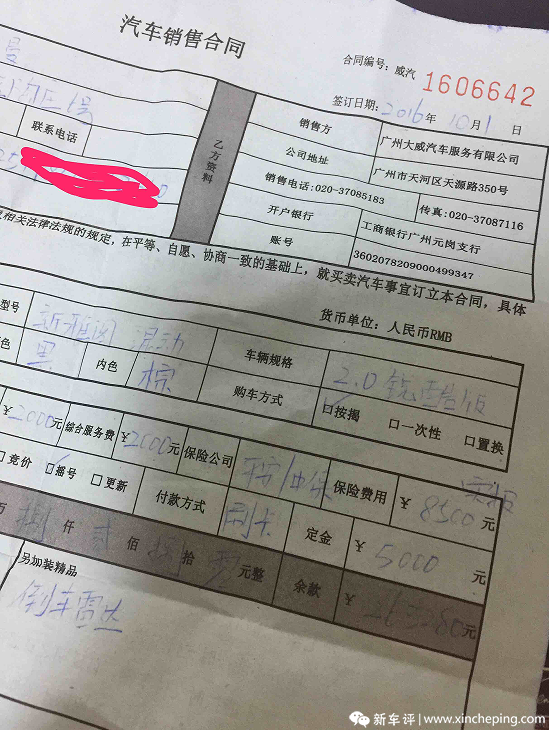 汽车销售合同
合同编号：威汽 1606642
签订日期：2016年10月1日
号
联系电话
乙方资料
销售方 广州大威汽车服务有限公司
公司地址 广州市天河区天源路350号
销售电话:020-37085183 传真:020-37087116
开户银行 工商银行广州元岗支行
账号 3602078209000499347
相关法律法规的规定，在平等、自愿、协商一致的基础上，就买卖汽车事宜订立本合同，具体
货币单位：人民币RMB
型号 新雅阁 混动 车辆规格 2.0 锐酷版
色 黑 内色 棕 购车方式 ☑按揭 □一次性 □置换
¥2000元 综合服务费 ¥2000元 保险公司 平安/中保 保险费用 ¥8500元
□竞价 ☑摇号 □更新 付款方式 刷卡 定金 ¥5000元
万 捌仟 贰佰 捌拾 元整 余款 ¥ 元
另加装精品
倒车雷达
新车评 | www.xincheping.com